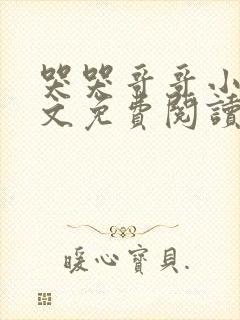 哭哭哥哥小
文免費閱讀
暖心寶貝.